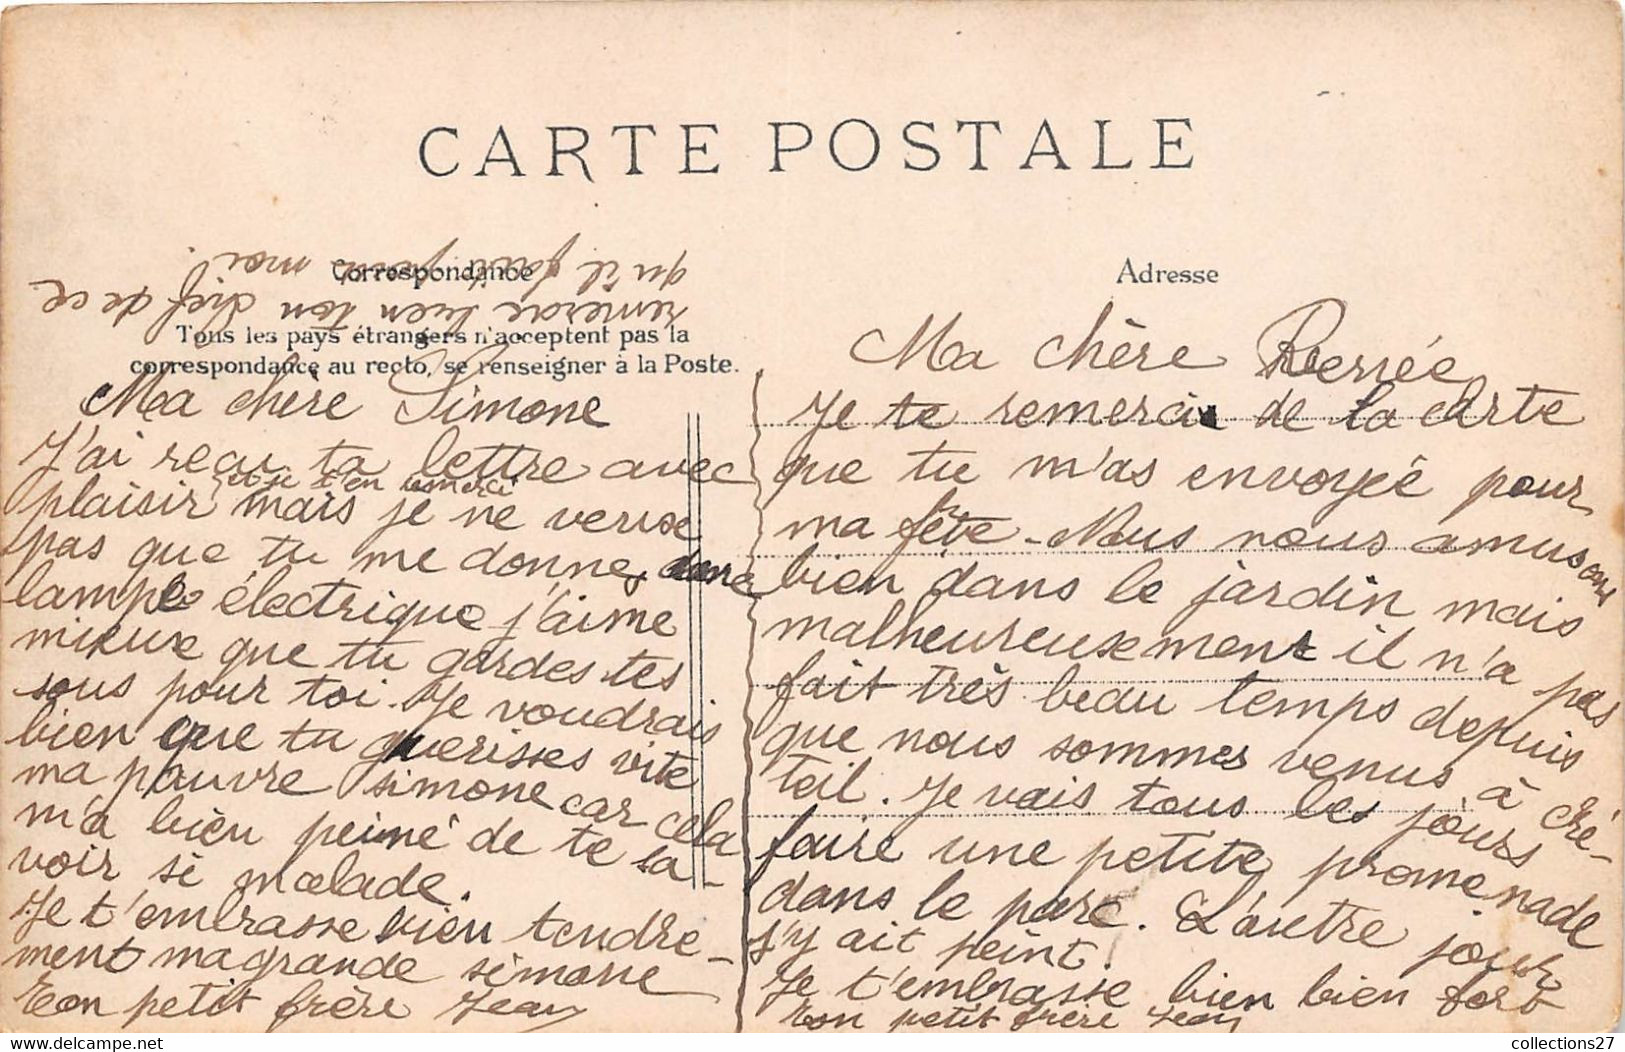 CARTE POSTALE
Correspondance
Tous les pays étrangers n'acceptent pas la
correspondance au recto, se renseigner à la Poste.
Ma chère Simone
J'ai reçu ta lettre avec
plaisir et je t'en remerci mais je ne veuxe
pas que tu me donnes, donc
lampe électrique j'aime
mieuxe que tu gardes tes
sous pour toi. Je voudrais
bien que tu guerisses vite
ma pauvre simone car cela
m'a bien peiné de te sa-
voir si malade.
Je t'embrasse bien tendre-
ment ma grande simone
Ton petit frère Jean
remercie bien ton chef de ce
qu'il fait pour moi.
Adresse
Ma chère Renée
Je te remercie de la carte
que tu m'as envoyée pour
ma fête - Nous nous amusons
bien dans le jardin mais
malheureusement il n'a pas
fait très beau temps depuis
que nous sommes venus à Cré-
teil. Je vais tous les jours
faire une petite promenade
dans le parc. L'autre jour
j'y ait peint!
Je t'embrasse bien bien fort
Ton petit frère Jean
collections27